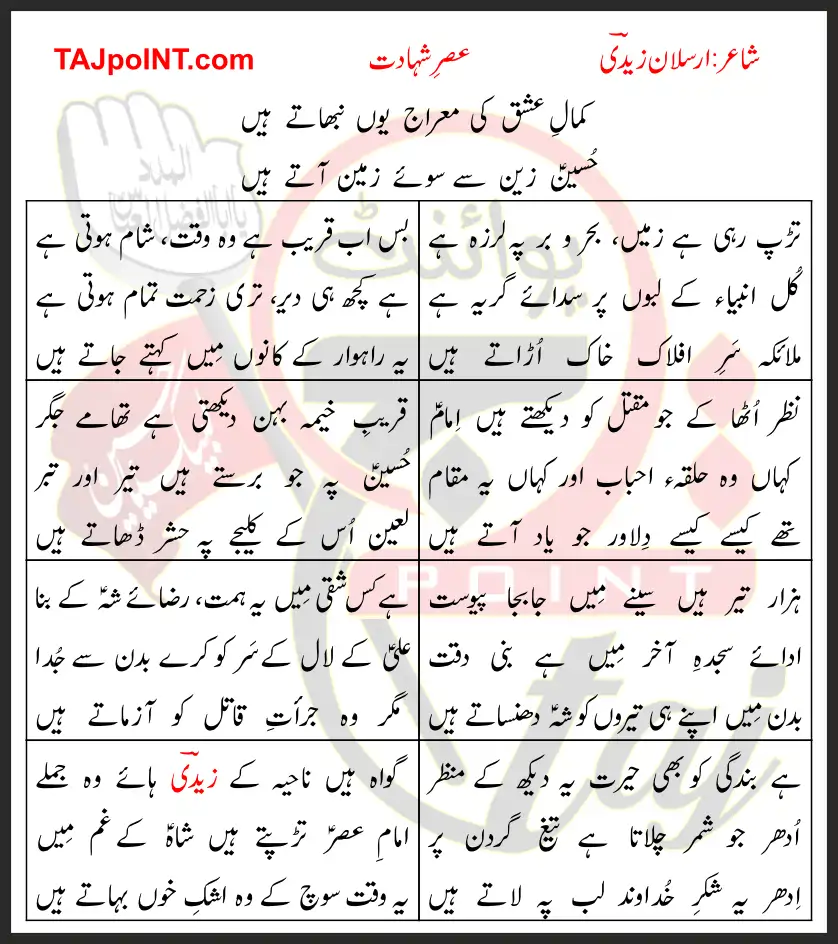 شاعر: ارسلان زیدیؔ
عصرِ شہادت
TAJpoINT.com
کمالِ عشق کی معراج یوں نبھاتے ہیں
حُسینؑ زین سے سوئے زمین آتے ہیں
تڑپ رہی ہے زمیں، بحر و بر پہ لرزہ ہے
کُل انبیاء کے لبوں پر سدائے گریہ ہے
ملائکہ سَرِ افلاک خاک اُڑاتے ہیں
بس اب قریب ہے وہ وقت، شام ہوتی ہے
ہے کچھ ہی دیر، تری زحمت تمام ہوتی ہے
یہ راہوار کے کانوں مِیں کہتے جاتے ہیں
نظر اُٹھا کے جو مقتل کو دیکھتے ہیں اِمامؑ
کہاں وہ حلقہء احباب اور کہاں یہ مقام
تھے کیسے کیسے دِلاور جو یاد آتے ہیں
قریبِ خیمہ بہن دیکھتی ہے تھامے جگر
حُسینؑ پہ جو برستے ہیں تیر اور تبر
لعین اُس کے کلیجے پہ حشر ڈھاتے ہیں
ہزار تیر ہیں سینے مِیں جابجا پیوست
ادائے سجدہِ آخر مِیں ہے بنی دقت
بدن مِیں اپنے ہی تیروں کو شہؑ دھنساتے ہیں
ہے کس شقی مِیں یہ ہمت، رضائے شہؑ کے بنا
علیؑ کے لال کے سَر کو کرے بدن سے جُدا
مگر وہ جرأتِ قاتل کو آزماتے ہیں
ہے بندگی کو بھی حیرت یہ دیکھ کے منظر
اُدھر جو شمر چلاتا ہے تیغ گردن پر
اِدھر یہ شکرِ خُداوند لب پہ لاتے ہیں
گواہ ہیں ناحیہ کے زیدیؔ ہائے وہ جملے
امامِ عصرؑ تڑپتے ہیں شاہؑ کے غم مِیں
یہ وقت سوچ کے وہ اشکِ خوں بہاتے ہیں
یوائنٹ
ج
POINT
taj